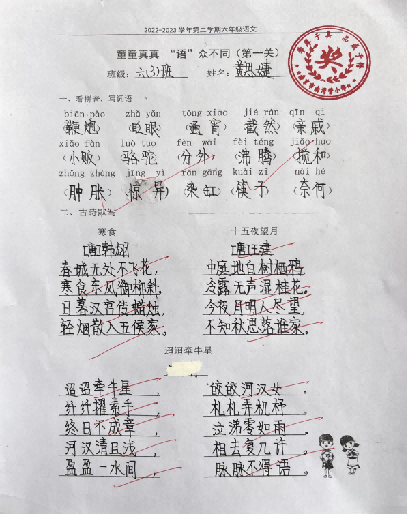 2022-2023学年第二学期六年级语文
童童真真 “语”众不同（第一关）
班级：六(3)班 姓名：
一、看拼音，写词语
biān pào zhǎ yǎn tōng xiāo jié rán qīn qi
（鞭炮）（眨眼）（通宵）（截然）（亲戚）
xiǎo fàn luò tuo fèn wài fèi téng jiǎo huo
（小贩）（骆驼）（分外）（沸腾）（搅和）
zhǒng zhàng jīng yì rǎn gāng kuài zi nài hé
（肿胀）（惊异）（染缸）（筷子）（奈何）
二、古诗默写
寒食 十五夜望月
[唐]韩翃 [唐]王建
春城无处不飞花， 中庭地白树栖鸦，
寒食东风御柳斜。 冷露无声湿桂花。
日暮汉宫传蜡烛， 今夜月明人尽望，
轻烟散入五侯家。 不知秋思落谁家。
迢迢牵牛星
迢迢牵牛星， 皎皎河汉女。
纤纤擢素手， 札札弄机杼。
终日不成章， 泣涕零如雨。
河汉清且浅， 相去复几许。
盈盈一水间， 脉脉不得语。
奖